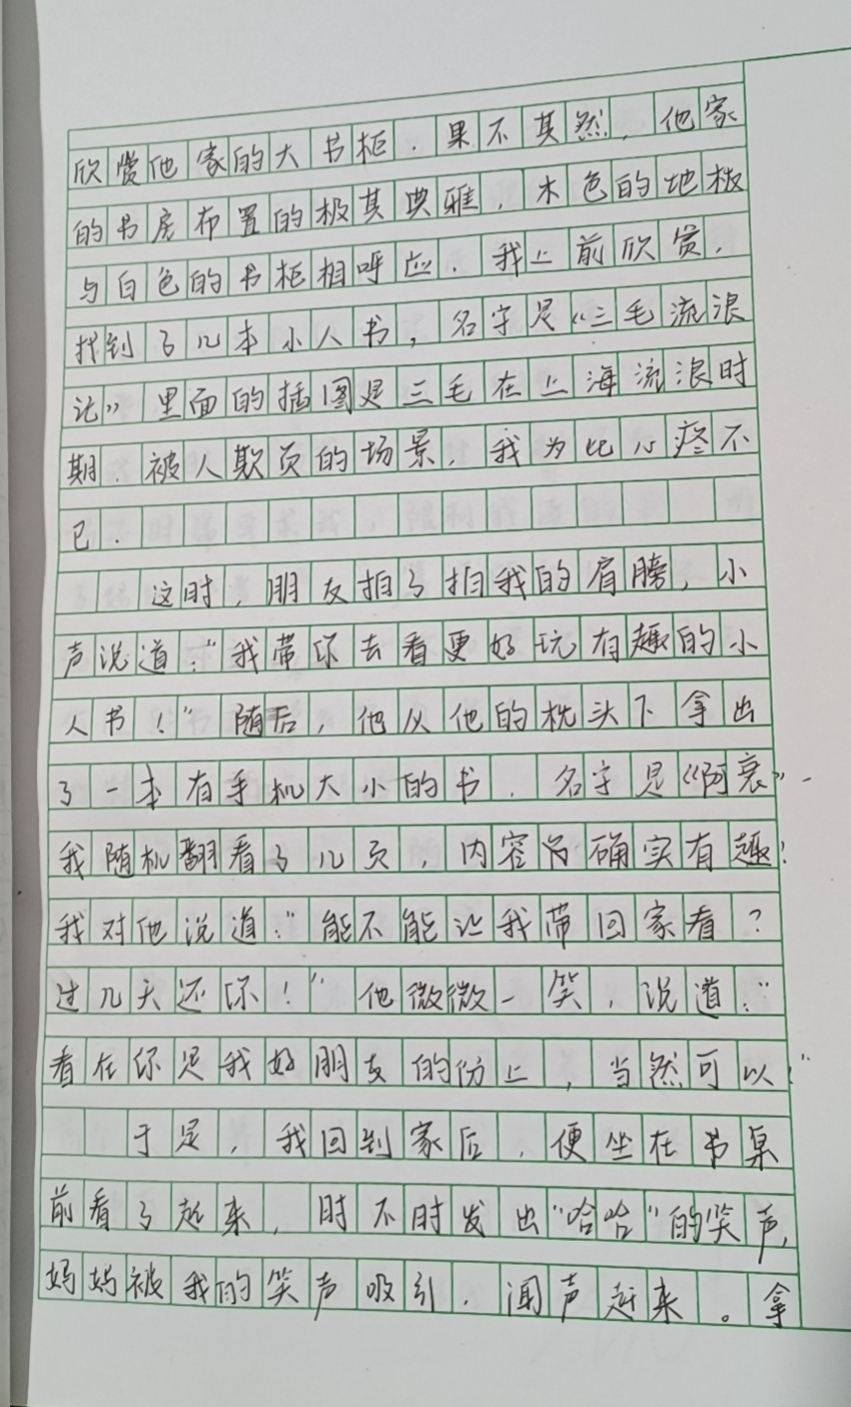 欣赏他家的大书柜．果不其然，他家
的书房布置的极其典雅，木色的地板
与白色的书柜相呼应．我上前欣赏，
找到了几本小人书，名字是《三毛流浪
记》里面的插图是三毛在上海流浪时
期．被人欺负的场景，我为此心疼不
已．
这时，朋友拍了拍我的肩膀，小
声说道：“我带你去看更好玩有趣的小
人书！”随后，他从他的枕头下拿出
了一本有手机大小的书．名字是《阿衰》
我随机翻看了几页，内容确实有趣！
我对他说道：“能不能让我带回家看？
过几天还你！”他微微一笑，说道：“
看在你是我好朋友的份上，当然可以！”
于是，我回到家后，便坐在书桌
前看了起来，时不时发出“哈哈”的笑声，
妈妈被我的笑声吸引，闻声赶来。拿